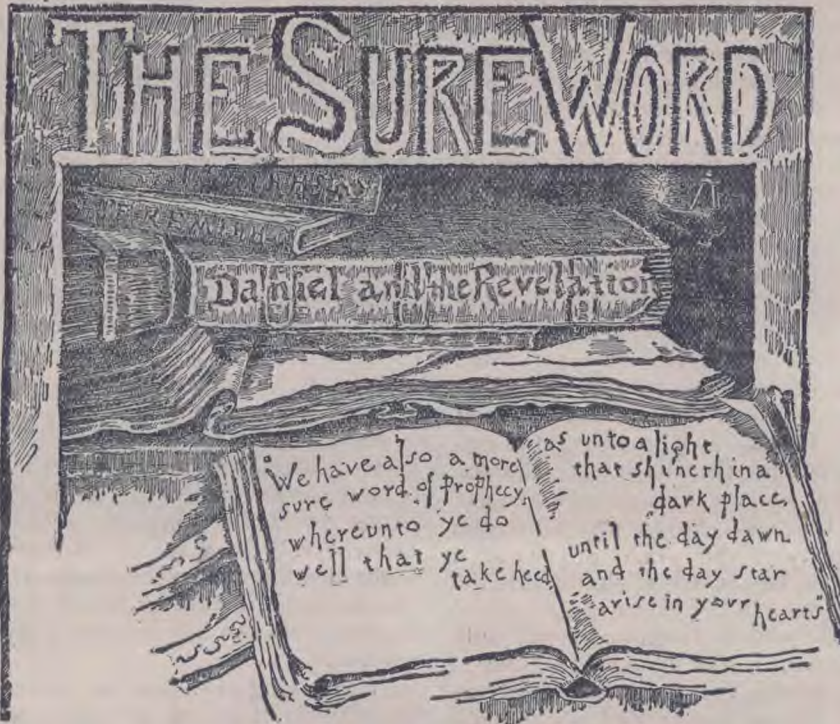 THE SURE WORD
JEREMIAH
Daniel and the Revelation
"We have also a more
sure word of prophecy,
whereunto ye do
well that ye
take heed,
as unto a light
that shineth in a
dark place,
until the day dawn
and the day star
arise in your hearts"